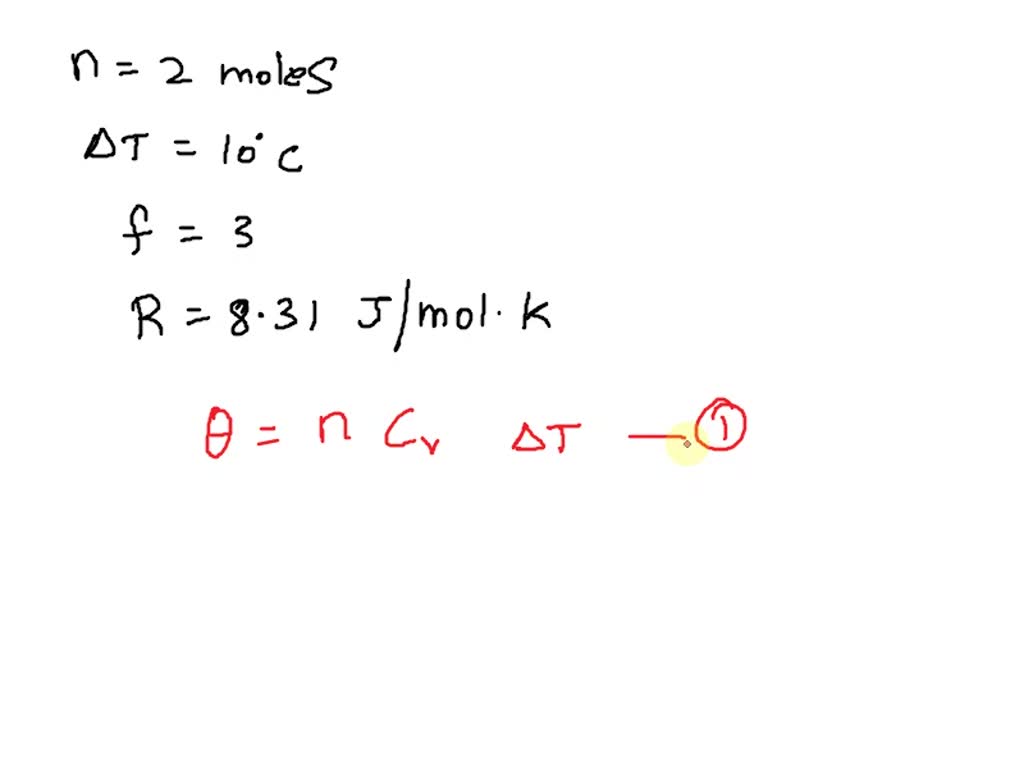 n = 2 moles
ΔT = 10°C
f = 3
R = 8.31 J/mol.k
θ = n Cv ΔT — ①